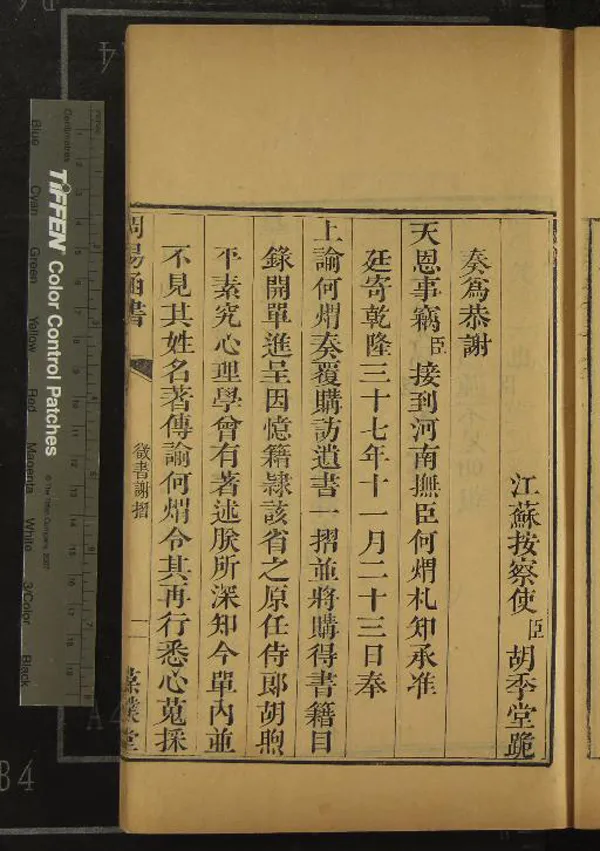 江蘇按察使臣胡季堂跪
奏爲恭謝
天恩事竊臣接到河南撫臣何煟札知承准
廷寄乾隆三十七年十一月二十三日奉
上諭何煟奏覆購訪遺書一摺並將購得書籍目
錄開單進呈因憶籍隸該省之原任侍郎胡煦
平素究心理學曾有著述朕所深知今單內並
不見其姓名著傳諭何煟令其再行悉心蒐採
周易函書
徵書謝摺
一
葆璞堂
TIFFEN Color Control Patches
© The Tiffen Company, 2007
Centimetres
Blue
Cyan
Green
Yellow
Red
Magenta
White
3/Color
Black